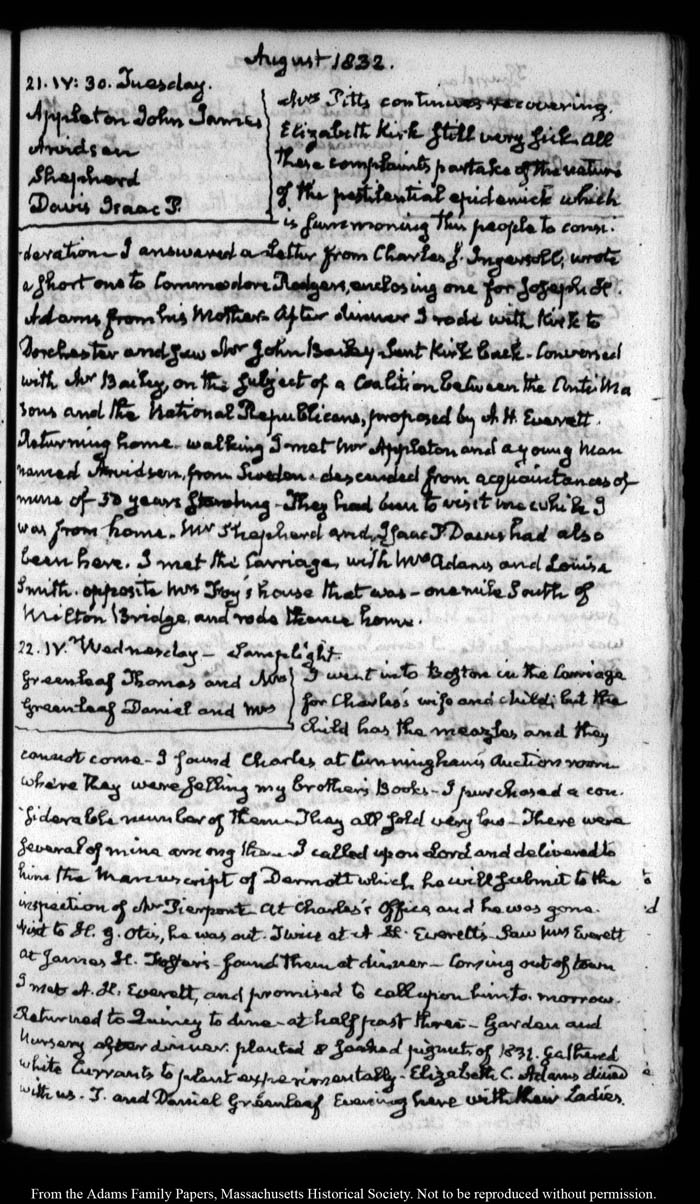 August 1832.
21. IV: 30. Tuesday.
Appleton John James
Arvidsen
Shepherd
Davis Isaac P.
Mrs Pitts continues recovering.
Elizabeth Kirk still very sick. All
these complaints partake of the nature
of the pestilential epidemick which
is summoning this people to consi-
deration - I answered a Letter from Charles J. Ingersoll; wrote
a short one to Commodore Rodgers, enclosing one for Joseph H.
Adams from his Mother. After dinner I rode with Kirk to
Dorchester and saw Mr John Bailey - Sent Kirk back - Conversed
with Mr Bailey on the subject of a Coalition between the Anti Ma
sons and the National Republicans, proposed by A. H. Everett.
Returning home - walking I met Mr Appleton and a young man
named Arvidsen, from Sweden - descended from acquaintances of
mine of 50 years standing - They had been to visit me while I
was from home. Mr Shepherd and Isaac P. Davis had also
been here. I met the Carriage, with Mrs Adams and Louisa
Smith. opposite Mrs Foy's house that was - one mile South of
Milton Bridge, and rode thence home.
22. IV. Wednesday - Lamplight.
Greenleaf Thomas and Mrs
Greenleaf Daniel and Mrs
I went into Boston in the Carriage
for Charles's wife and child; but the
child has the meazles and they
cannot come - I found Charles at Cunningham's Auction room
where they were selling my brother's Books - I purchased a con-
siderable number of them - They all sold very low - There were
several of mine among them - I called upon Lord and delivered to
him the Manuscript of Dermott which he will submit to the
inspection of Mr Pierpont. At Charles's Office, and he was gone.
Visit to H. G. Otis, he was out. Twice at A. H. Everett's - Saw Mrs Everett
at James H. Foster's - found them at dinner - Coming out of town
I met A. H. Everett, and promised to call upon him to-morrow.
Returned to Quincy to dine - at half past three - Garden and
Nursery after dinner. planted 8 soaked pignuts of 1831. Gathered
white Currants to plant experimentally - Elizabeth C. Adams dined
with us. T. and Daniel Greenleaf Evening here with their Ladies.
From the Adams Family Papers, Massachusetts Historical Society. Not to be reproduced without permission.